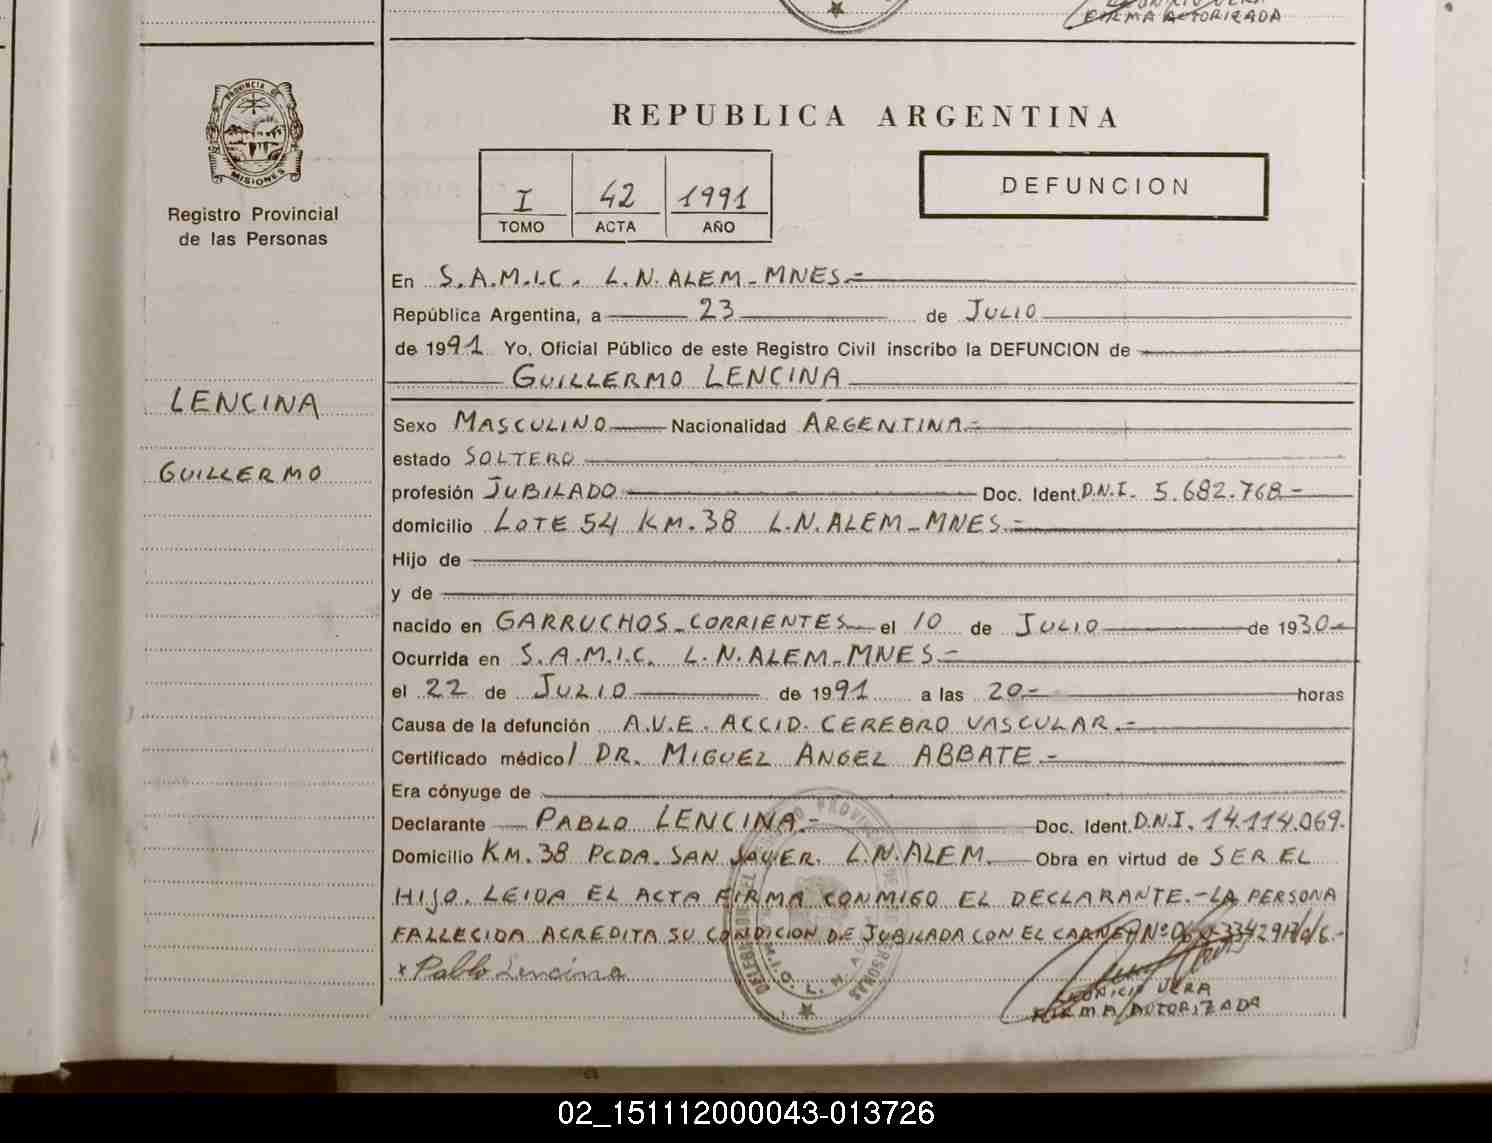 FIRMA AUTORIZADA
PROVINCIA DE
MISIONES
Registro Provincial
de las Personas
LENCINA
GUILLERMO
REPUBLICA ARGENTINA
I 42 1991
TOMO ACTA AÑO
DEFUNCION
En S.A.M.I.C. L.N. ALEM-MNES.-
República Argentina, a 23 de JULIO
de 1991 Yo, Oficial Público de este Registro Civil inscribo la DEFUNCION de
GUILLERMO LENCINA
Sexo MASCULINO Nacionalidad ARGENTINA.-
estado SOLTERO
profesión JUBILADO Doc. Ident. D.N.I. 5.682.768-
domicilio LOTE 54 KM.38 L.N. ALEM-MNES.-
Hijo de
y de
nacido en GARRUCHOS-CORRIENTES el 10 de JULIO de 1930-
Ocurrida en S.A.M.I.C. L.N. ALEM-MNES-
el 22 de JULIO de 1991 a las 20.- horas
Causa de la defunción A.V.E. ACCID. CEREBRO VASCULAR.-
Certificado médico/ DR. MIGUEL ANGEL ABBATE.-
Era cónyuge de
Declarante PABLO LENCINA.- Doc. Ident. D.N.I. 14.114.069.
Domicilio KM.38 PCDA. SAN JAVIER. L.N. ALEM. Obra en virtud de SER EL
HIJO. LEIDA EL ACTA FIRMA CONMIGO EL DECLARANTE.-LA PERSONA
FALLECIDA ACREDITA SU CONDICION DE JUBILADA CON EL CARNET Nº
x Pablo Lencina
VERA
FIRMA AUTORIZADA
02_151112000043-013726